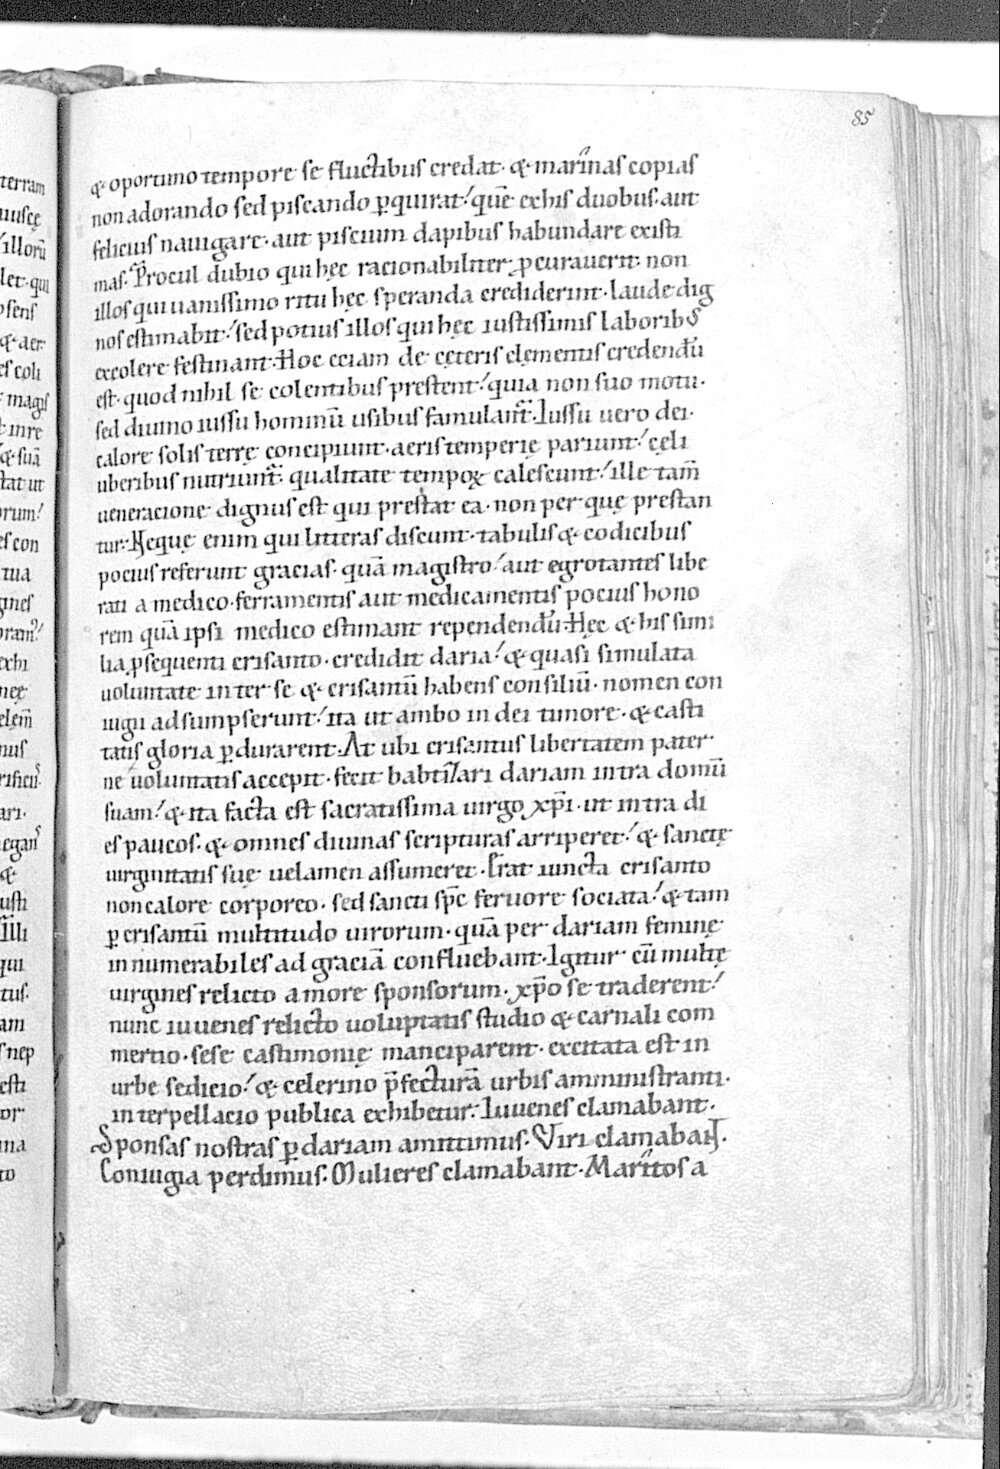 85
& oportuno tempore se fluctibus credat· & marinas copias
non adorando sed piscando ꝑquirat! quē ex his duobus· aut
felicius nauigare· aut piscium dapibus habundare existi
mas· Procul dubio qui hęc racionabiliter ꝓcurauerit· non
illos qui uanissimo ritu hęc speranda crediderint· laude dig
nos estimabit! sed potius illos qui hęc iustissimis laborib;
excolere festinant· Hoc eciam de cęteris elementis credendū
est· quod nihil se colentibus prestent! quia non suo motu·
sed diuino iussu hominū usibus famulant᷑· Iussu uero dei·
calore solis terrę concipiunt· aeris temperię pariunt! cęli
uberibus nutriunt᷑· qualitate tempoꝝ calescunt! ille tam̄
ueneracione dignus est qui prestat ea· non per quę prestan
tur· Neque enim qui litteras discunt· tabulis & codicibus
pocius referunt gracias· quā magistro! aut egrotantes libe
rati a medico· ferramentis aut medicamentis pocius hono
rem quā ipsi medico estimant rependendū· Hęc & his simi
lia ꝑsequenti crisanto· credidit daria! & quasi simulata
uoluntate inter se & crisantū habens consiliū· nomen con
iugii adsumpserunt! ita ut ambo in dei timore· & casti
tatis gloria ꝑdurarent· At ubi crisantus libertatem pater
nę uoluntatis accepit· fecit babtizari dariam intra domū
suam! & ita facta est sacratissima uirgo xp̄i· ut intra di
es paucos· & omnes diuinas scripturas arriperet! & sanctę
uirginitatis suę uelamen assumeret· Erat iuncta crisanto
non calore corporeo· sed sancti sp̄c feruore sociata! & tam
ꝑ crisantū multitudo uirorum· quā per dariam feminę
innumerabiles ad graciā confluebant· Igitur cū multę
uirgines relicto amore sponsorum· xp̄o se traderent!
nunc iuuenes relicto uoluptatis studio & carnali com
mertio· sese castimonię manciparent· excitata est in
urbe sedicio! & celerino p̄fecturā urbis amministranti·
interpellacio publica exhibetur· Iuuenes clamabant·
Sponsas nostras ꝑ dariam amittimus· Viri clamabant·
Coniugia perdimus· Mulieres clamabant· Maritos a